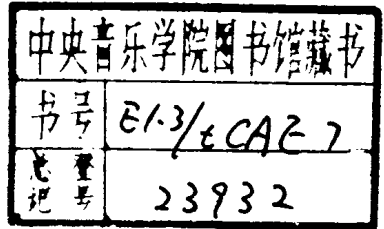 中央音乐学院图书馆藏书
书号 E1.3/tCAE7
总登记号 23932